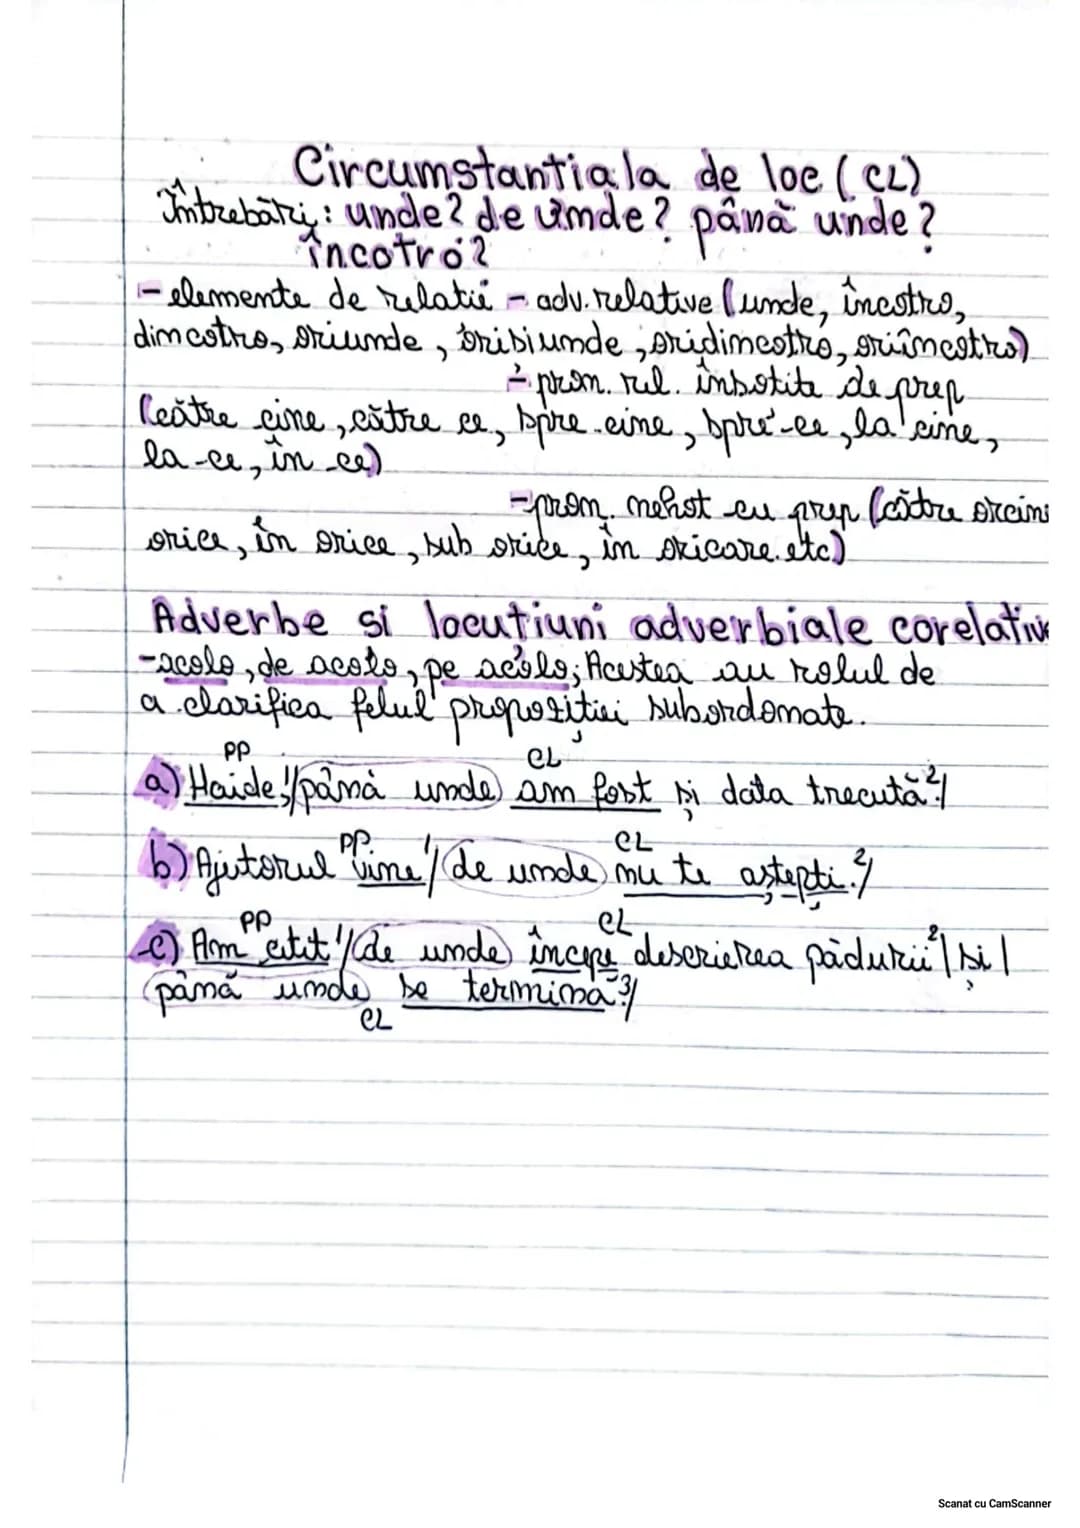 Circumstantiala de loc (CL)
Întrebări: unde? de unde? până unde?
încotro?
- elemente de relatie - adv. relative (unde, încotro,
dincotro, oriunde, orisiunde, oridincotro, oriîncotro)
- pron. rel. însotite de prep
(către cine, către ce, spre cine, spre ce, la cine,
la ce, în ce)
- pron. nehot cu prep (către oricine
orice, în orice, sub orice, în oricare etc)
Adverbe si locuțiuni adverbiale corelative
- acolo, de acolo, pe acolo; Acestea au rolul de
a clarifica felul propoziției subordonate.
PP CL
a) Haide!¹/până unde am fost și data trecută.²/
PP CL
b) Ajutorul vine¹/de unde nu te aștepți.²/
PP CL
c) Am citit¹/de unde începe descrierea pădurii²/și/
până unde se termina.³/
CL
Scanat cu CamScanner